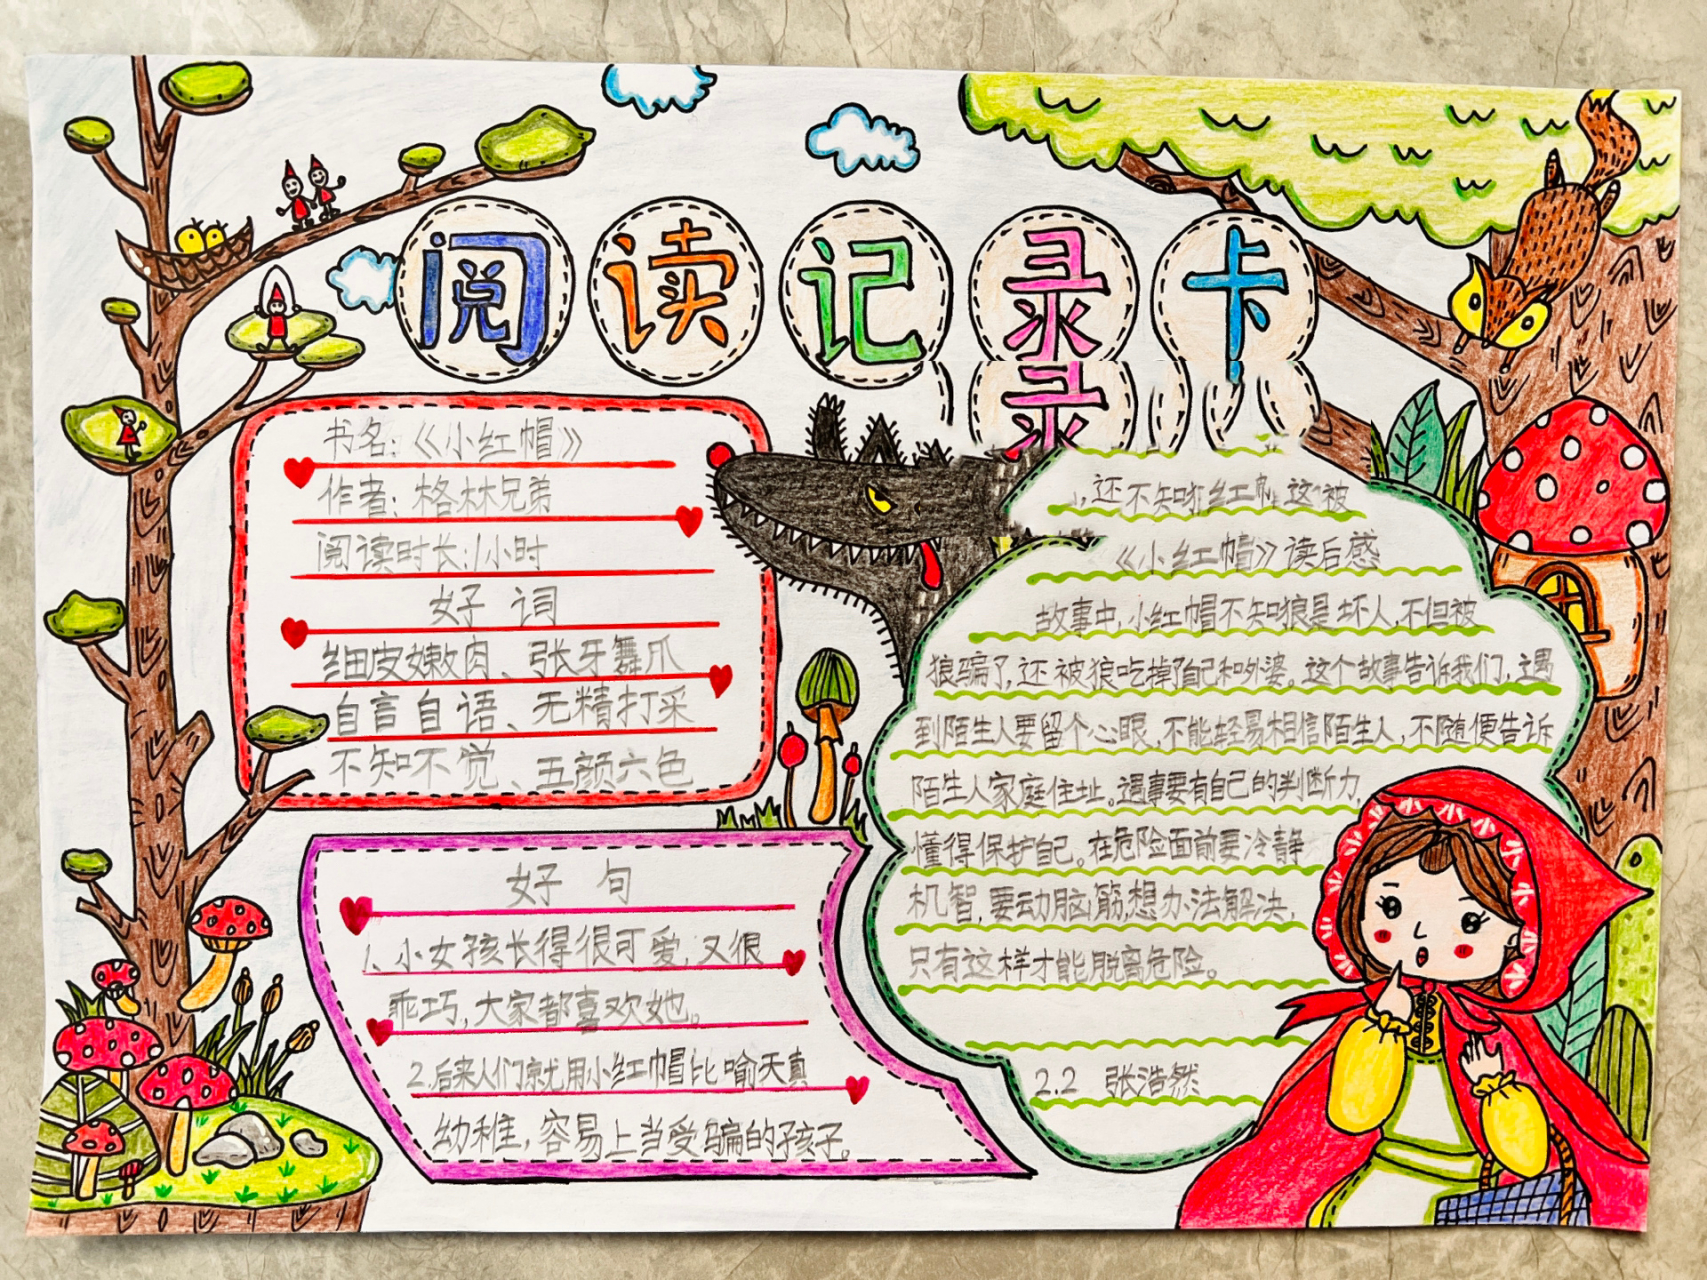 阅读记录卡
录
书名:《小红帽》
作者:格林兄弟
阅读时长:1小时
好词
细皮嫩肉、张牙舞爪
自言自语、无精打采
不知不觉、五颜六色
好句
1、小女孩长得很可爱,又很
乖巧,大家都喜欢她。
2.后来人们就用小红帽比喻天真
幼稚,容易上当受骗的孩子。
,还不知 红 这 被
《小红帽》读后感
故事中,小红帽不知狼是坏人,不但被
狼骗了,还被狼吃掉了自己和外婆。这个故事告诉我们,遇
到陌生人要留个心眼,不能轻易相信陌生人,不随便告诉
陌生人家庭住址。遇事要有自己的判断力,
懂得保护自己。在危险面前要冷静
机智,要动脑筋,想办法解决,
只有这样才能脱离危险。
2.2 张浩然